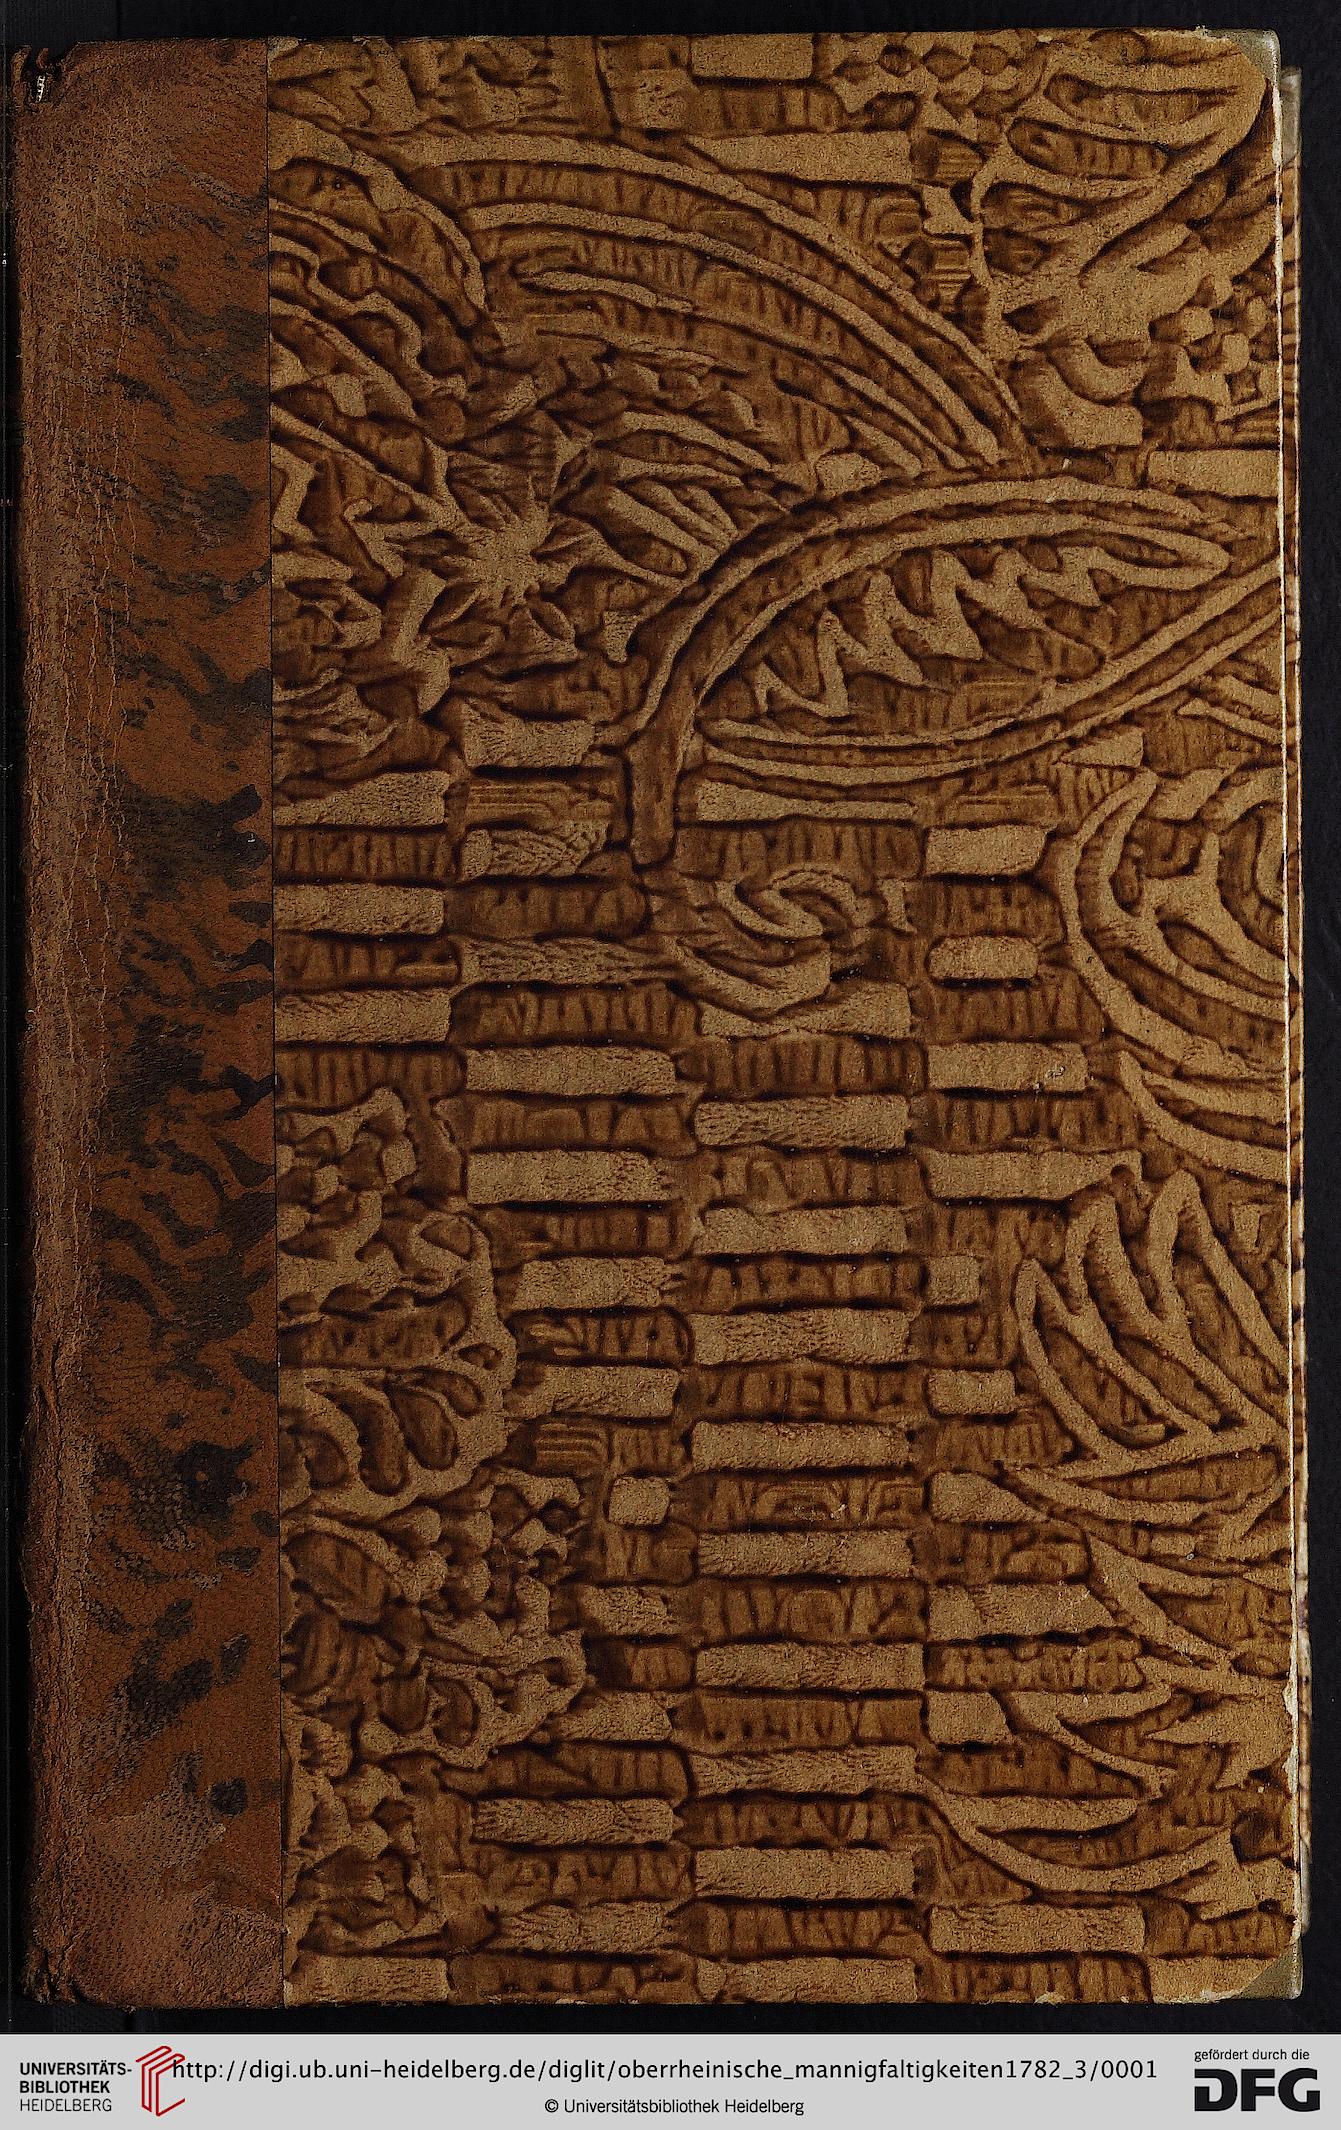 UNIVERSITÄTS-
BIBLIOTHEK
HEIDELBERG
http://digi.ub.uni-heidelberg.de/diglit/oberrheinische_mannigfaltigkeiten1782_3/0001
© Universitätsbibliothek Heidelberg
gefördert durch die
DFG